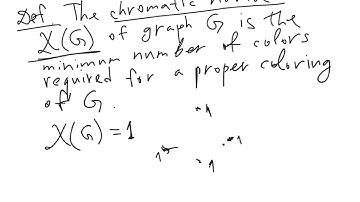 Def The chromatic
χ(G) of graph G is the
minimum number of colors
required for a proper coloring
of G.
χ(G) = 1
1
1
1
1